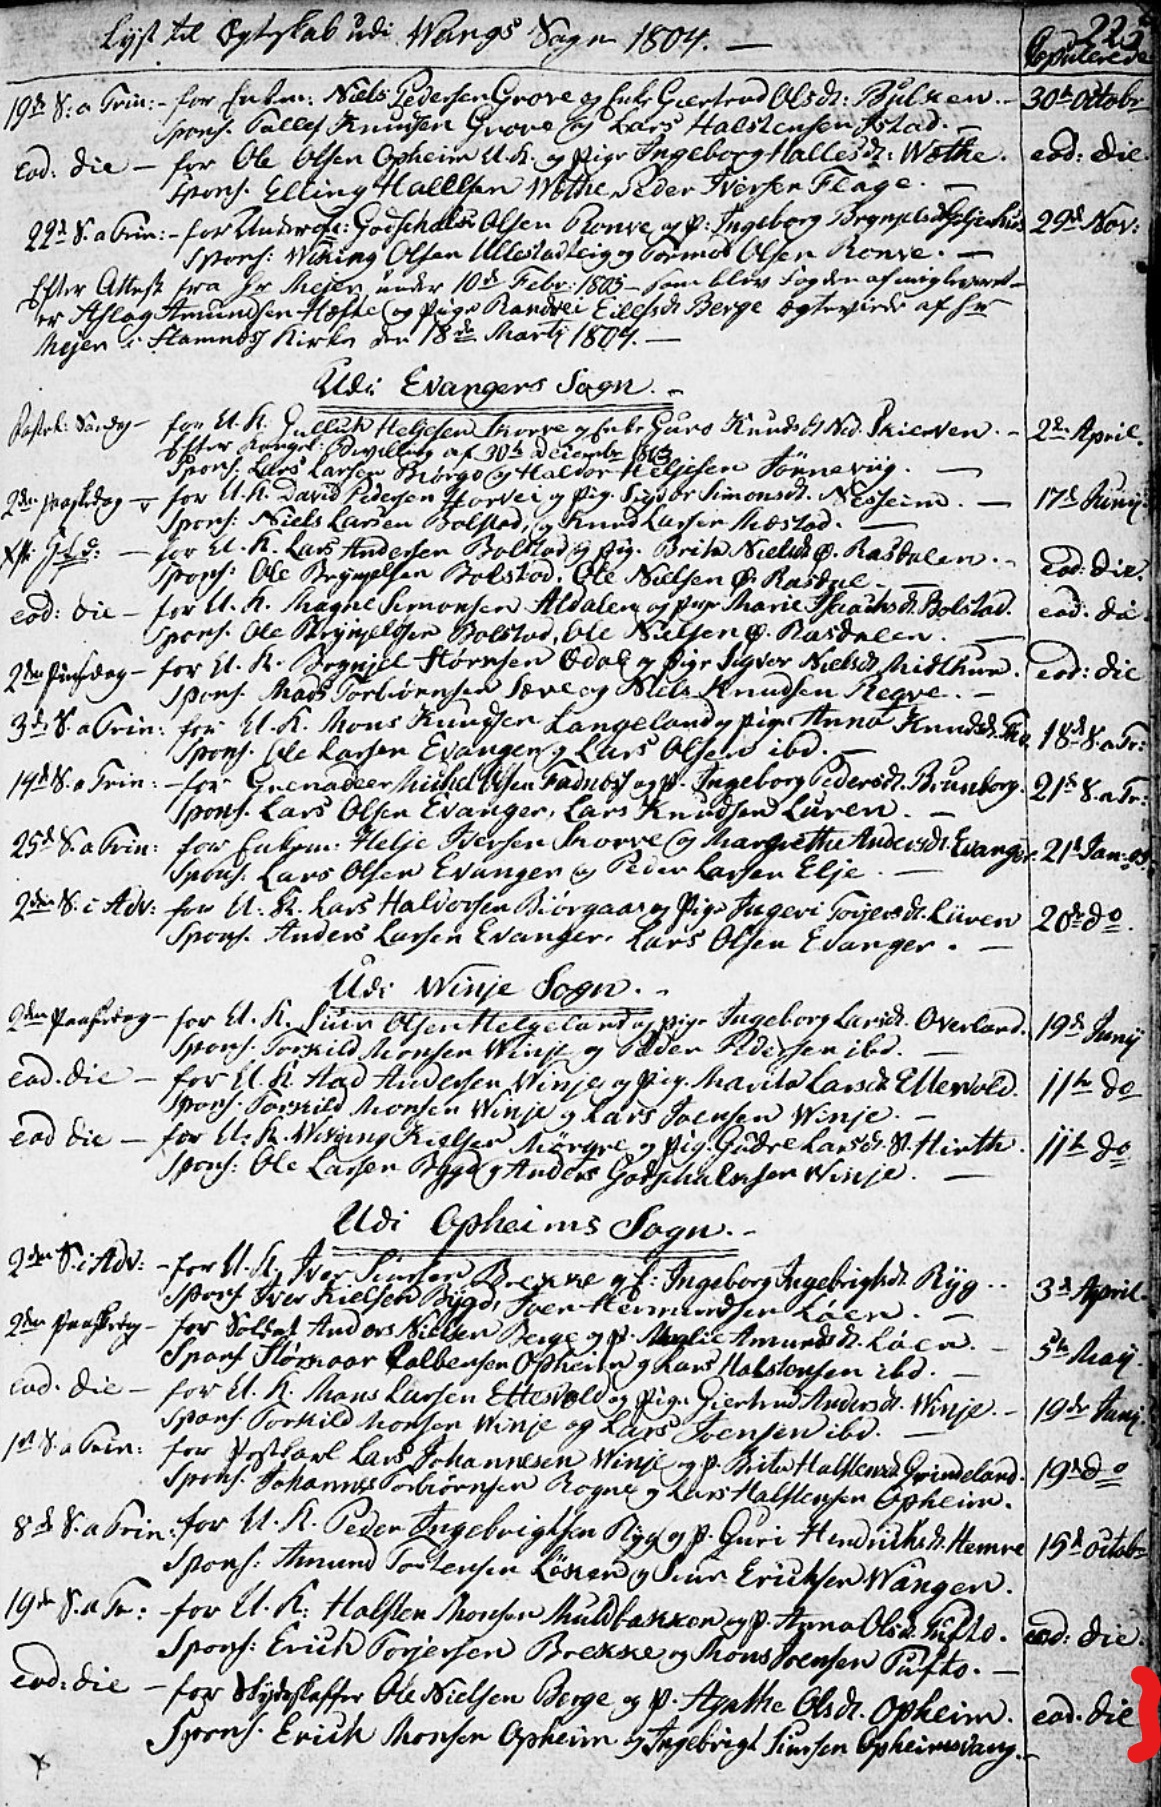 225
Lyst til Ægteskab udi Wangs Sogn 1804. Copulerede
19de S: a Trin: - for Enkem: Niels Pedersen Grove og Enke Giertrud Olsdt: Bulken. - 30te Octobr
Spons. Tollef Knudsen Grove og Lars Halstensen Istad. -
eod: die - for Ole Olsen Opheim U. K. og Pige Ingeborg Hallesdt: Wethe. eod: die
Spons. Elling Hallesen Wethe, Peder Iversen Flage. -
22de S. a Trin: - for Underof: Godschalk Olsen Ronve og P: Ingeborg 29de Nov:
Spons: Wiking Olsen Ullestadteig og Tormod Olsen Ronve. -
Efter Attest fra Hr Mejer under 10de Febr: 1805 - som blev
er Aslag Amundsen Hæfte og Pige Randvei Eilefsdt Berge ægteviede af Hr
Mejer i Stamnes Kirke den 18de Martj 1804. -
Udi Evangers Sogn. -
Fastel: Søndag - for U. K. Gulluk Heljesen Skorve og Enke Guro Knudsdt Ned. Skierven. - 2den April.
Efter Kongel: Bevilling af 30te December 1803
Spons. Lars Larsen Biørgo og Haldor Heljesen Fønneviig. -
2den Paaskedag - for U. K. David Pedersen Horvei og Pig. Sigvor Simonsdt. Nesheim. - 17de Junij.
Spons: Niels Larsen Bolstad, og Knud Larsen Mæstad. -
- for U. K. Lars Andersen Bolstad og Pig. Brita Nielsdt Ø. Rasdalen. - eod: die.
Spons: Ole Brynjelsen Bolstad. Ole Nielsen Ø. Rasdal. -
eod: die - for U. K. Magne Simonsen Aldalen og Pige Marie Isaachsdt. Bolstad. eod: die.
Spons. Ole Brynjelsen Bolstad, Ole Nielsen Ø. Rasdalen. -
2den Pinsedag - for U. K. Brynjel Størksen Ødal og Pige Sigvor Nielsdt. Midthun. eod: die
Spons. Mads Torbiørnsen Sæve og Niels Knudsen Reqve. -
3de S. a Trin: for U. K. Mons Knudsen Langeland og Pige Anna Knudsdt. 18de S. a Tr:
Spons. Ole Larsen Evanger og Lars Olsen ibd. -
14de S. a Trin: - for Grenadeer Michel Olsen Fadnes og P. Ingeborg Pedersdt. Brunborg. 21de S. a Tr:
Spons. Lars Olsen Evanger, Lars Knudsen Lüren. -
25de S. a Trin: for Enkem: Helje Iversen Skorve og Margrethe Andersdt. Evanger. 21de Jan: 05.
Spons. Lars Olsen Evanger og Peder Larsen Elje. -
2den S. i Adv: for U. K. Lars Halvorsen Biørgaas og Pige Ingeri Torjersdt. Lüren 20de do.
Spons. Anders Larsen Evanger. Lars Olsen Evanger. -
Udi Winje Sogn. -
2den Paaskedag - for U. K. Siur Olsen Helgeland og Pige Ingeborg Larsdt. Overland. 19de Junij
Spons. Torkild Monsen Winje og Peder Pedersen ibd. -
eod. die - for U. K. Aad Andersen Winje og Pig. Marita Larsdt Ettevold. 11te do
Spons. Torkild Monsen Winje og Lars Joensen Winje. -
eod die - for U. K. Wiking Kielsen Mørqve og Pig. Gudve Larsdt. N. Hirth. 11te do
Spons: Ole Larsen Bygd og Anders Godschalksen Winje. -
Udi Opheims Sogn. -
2den S. i Adv: - for U. K. Iver Siursen Brekke og P: Ingeborg Ingebrigtsdt. Ryg. - 3de April.
Spons. Iver Kielsen Bygd, Joen Hermundsen Løen. -
2den Paaskedag - for Soldat Anders Nielsen Berge og P. Marie Amundsdt. Løen. - 5te Maij.
Spons. Størkoor Colbensen Opheim og Lars Halstensen ibd. -
eod. die - for U. K. Mons Larsen Ettevold og Pige Giertrud Andersdt. Winje. - 19de Junij.
Spons. Torkild Monsen Winje og Lars Joensen ibd. -
1ste S. a Trin: for Postkarl Lars Johannesen Winje og P. Brita Halstensdt. Grimeland. 19de do
Spons. Johannes Torbiørnsen Rogne og Lars Halstensen Opheim.
8de S. a Trin: for U. K. Peder Ingebrigtsen Ryg og P. Guri Hendrichsdt. Hemre 15de Octobr
Spons: Amund Tostensen Løken og Siur Erichsen Wangen.
19de S. a Tr: - for U. K: Halsten Monsen Muldbakken og P. Anna Olsdt. Tufto. eod: die.
Spons: Erich Torjersen Brekke og Mons Joensen Tufto. -
eod: die - for Skydsskaffer Ole Nielsen Berge og P. Agathe Olsdt. Opheim. eod. die
Spons. Erich Monsen Opheim og Ingebrigt Siursen Opheimsvang. -